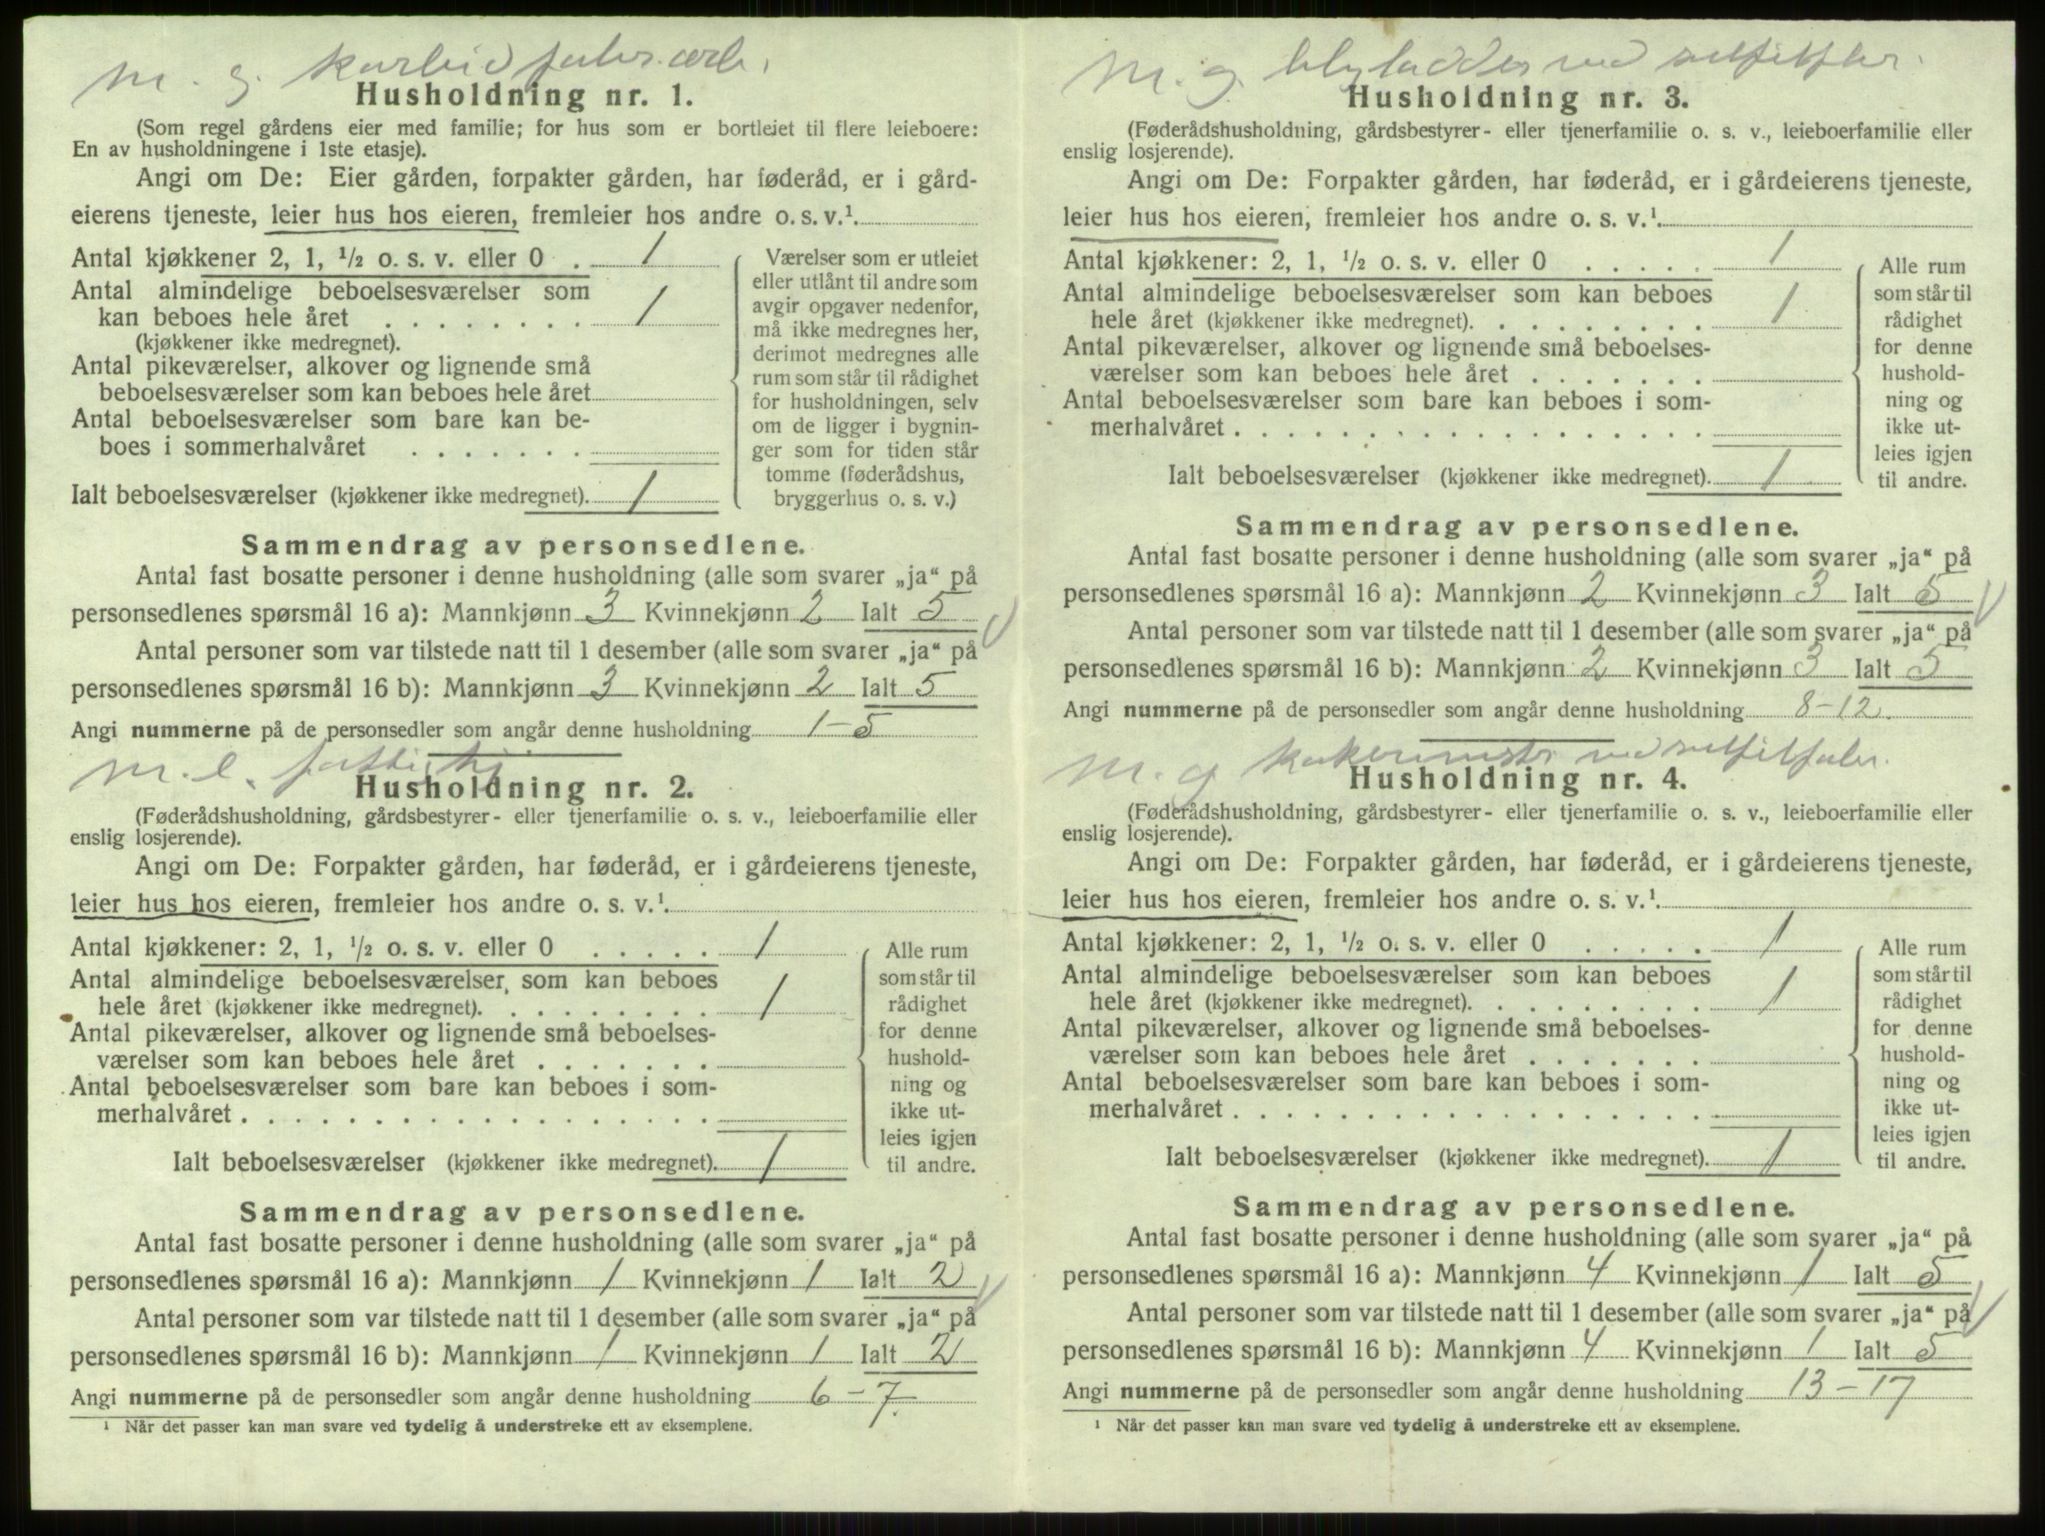 M. g. karbidfabr.arb.
Husholdning nr. 1.
(Som regel gårdens eier med familie; for hus som er bortleiet til flere leieboere:
En av husholdningene i 1ste etasje).
Angi om De: Eier gården, forpakter gården, har føderåd, er i gård-
eierens tjeneste, leier hus hos eieren, fremleier hos andre o. s. v.¹
Antal kjøkkener 2, 1, ½ o. s. v. eller 0 . 1
Antal almindelige beboelsesværelser som
kan beboes hele året . . . . . . . . 1
(kjøkkener ikke medregnet).
Antal pikeværelser, alkover og lignende små
beboelsesværelser som kan beboes hele året
Antal beboelsesværelser som bare kan be-
boes i sommerhalvåret . . . . . . .
Ialt beboelsesværelser (kjøkkener ikke medregnet). 1
Værelser som er utleiet
eller utlånt til andre som
avgir opgaver nedenfor,
må ikke medregnes her,
derimot medregnes alle
rum som står til rådighet
for husholdningen, selv
om de ligger i bygnin-
ger som for tiden står
tomme (føderådshus,
bryggerhus o. s. v.)
Sammendrag av personsedlene.
Antal fast bosatte personer i denne husholdning (alle som svarer „ja“ på
personsedlenes spørsmål 16 a): Mannkjønn 3 Kvinnekjønn 2 Ialt 5
Antal personer som var tilstede natt til 1 desember (alle som svarer „ja“ på
personsedlenes spørsmål 16 b): Mannkjønn 3 Kvinnekjønn 2 Ialt 5
Angi nummerne på de personsedler som angår denne husholdning 1-5
M. e.
Husholdning nr. 2.
(Føderådshusholdning, gårdsbestyrer- eller tjenerfamilie o. s. v., leieboerfamilie eller
enslig losjerende).
Angi om De: Forpakter gården, har føderåd, er i gårdeierens tjeneste,
leier hus hos eieren, fremleier hos andre o. s. v.¹
Antal kjøkkener: 2, 1, ½ o. s. v. eller 0 . . . . . 1
Antal almindelige beboelsesværelser, som kan beboes
hele året (kjøkkener ikke medregnet). . . . . . . . . 1
Antal pikeværelser, alkover og lignende små beboelses-
værelser som kan beboes hele året . . . . . . .
Antal beboelsesværelser som bare kan beboes i som-
merhalvåret . . . . . . . . . . . . . . . . . .
Ialt beboelsesværelser (kjøkkener ikke medregnet). 1
Alle rum
som står til
rådighet
for denne
hushold-
ning og
ikke ut-
leies igjen
til andre.
Sammendrag av personsedlene.
Antal fast bosatte personer i denne husholdning (alle som svarer „ja“ på
personsedlenes spørsmål 16 a): Mannkjønn 1 Kvinnekjønn 1 Ialt 2
Antal personer som var tilstede natt til 1 desember (alle som svarer „ja“ på
personsedlenes spørsmål 16 b): Mannkjønn 1 Kvinnekjønn 1 Ialt 2
Angi nummerne på de personsedler som angår denne husholdning 6-7.
¹ Når det passer kan man svare ved tydelig å understreke ett av eksemplene.
M. g. ved
Husholdning nr. 3.
(Føderådshusholdning, gårdsbestyrer- eller tjenerfamilie o. s. v., leieboerfamilie eller
enslig losjerende).
Angi om De: Forpakter gården, har føderåd, er i gårdeierens tjeneste,
leier hus hos eieren, fremleier hos andre o. s. v.¹.
Antal kjøkkener: 2, 1, ½ o. s. v. eller 0 . . . . . 1
Antal almindelige beboelsesværelser som kan beboes
hele året (kjøkkener ikke medregnet). . . . . . . . . 1
Antal pikeværelser, alkover og lignende små beboelses-
værelser som kan beboes hele året . . . . . . .
Antal beboelsesværelser som bare kan beboes i som-
merhalvåret . . . . . . . . . . . . . . . . . .
Ialt beboelsesværelser (kjøkkener ikke medregnet). 1
Alle rum
som står til
rådighet
for denne
hushold-
ning og
ikke ut-
leies igjen
til andre.
Sammendrag av personsedlene.
Antal fast bosatte personer i denne husholdning (alle som svarer „ja“ på
personsedlenes spørsmål 16 a): Mannkjønn 2 Kvinnekjønn 3 Ialt 5
Antal personer som var tilstede natt til 1 desember (alle som svarer „ja“ på
personsedlenes spørsmål 16 b): Mannkjønn 2 Kvinnekjønn 3 Ialt 5
Angi nummerne på de personsedler som angår denne husholdning 8-12.
M. g. ved
Husholdning nr. 4.
(Føderådshusholdning, gårdsbestyrer- eller tjenerfamilie o. s. v., leieboerfamilie eller
enslig losjerende).
Angi om De: Forpakter gården, har føderåd, er i gårdeierens tjeneste,
leier hus hos eieren, fremleier hos andre o. s. v.¹.
Antal kjøkkener: 2, 1, ½ o. s. v. eller 0 . . . . . 1
Antal almindelige beboelsesværelser som kan beboes
hele året (kjøkkener ikke medregnet). . . . . . . . . 1
Antal pikeværelser, alkover og lignende små beboelses-
værelser som kan beboes hele året . . . . . . .
Antal beboelsesværelser som bare kan beboes i som-
merhalvåret . . . . . . . . . . . . . . . . . .
Ialt beboelsesværelser (kjøkkener ikke medregnet). 1
Alle rum
som står til
rådighet
for denne
hushold-
ning og
ikke ut-
leies igjen
til andre.
Sammendrag av personsedlene.
Antal fast bosatte personer i denne husholdning (alle som svarer „ja“ på
personsedlenes spørsmål 16 a): Mannkjønn 4 Kvinnekjønn 1 Ialt 5
Antal personer som var tilstede natt til 1 desember (alle som svarer „ja“ på
personsedlenes spørsmål 16 b): Mannkjønn 4 Kvinnekjønn 1 Ialt 5
Angi nummerne på de personsedler som angår denne husholdning 13-17
¹ Når det passer kan man svare ved tydelig å understreke ett av eksemplene.